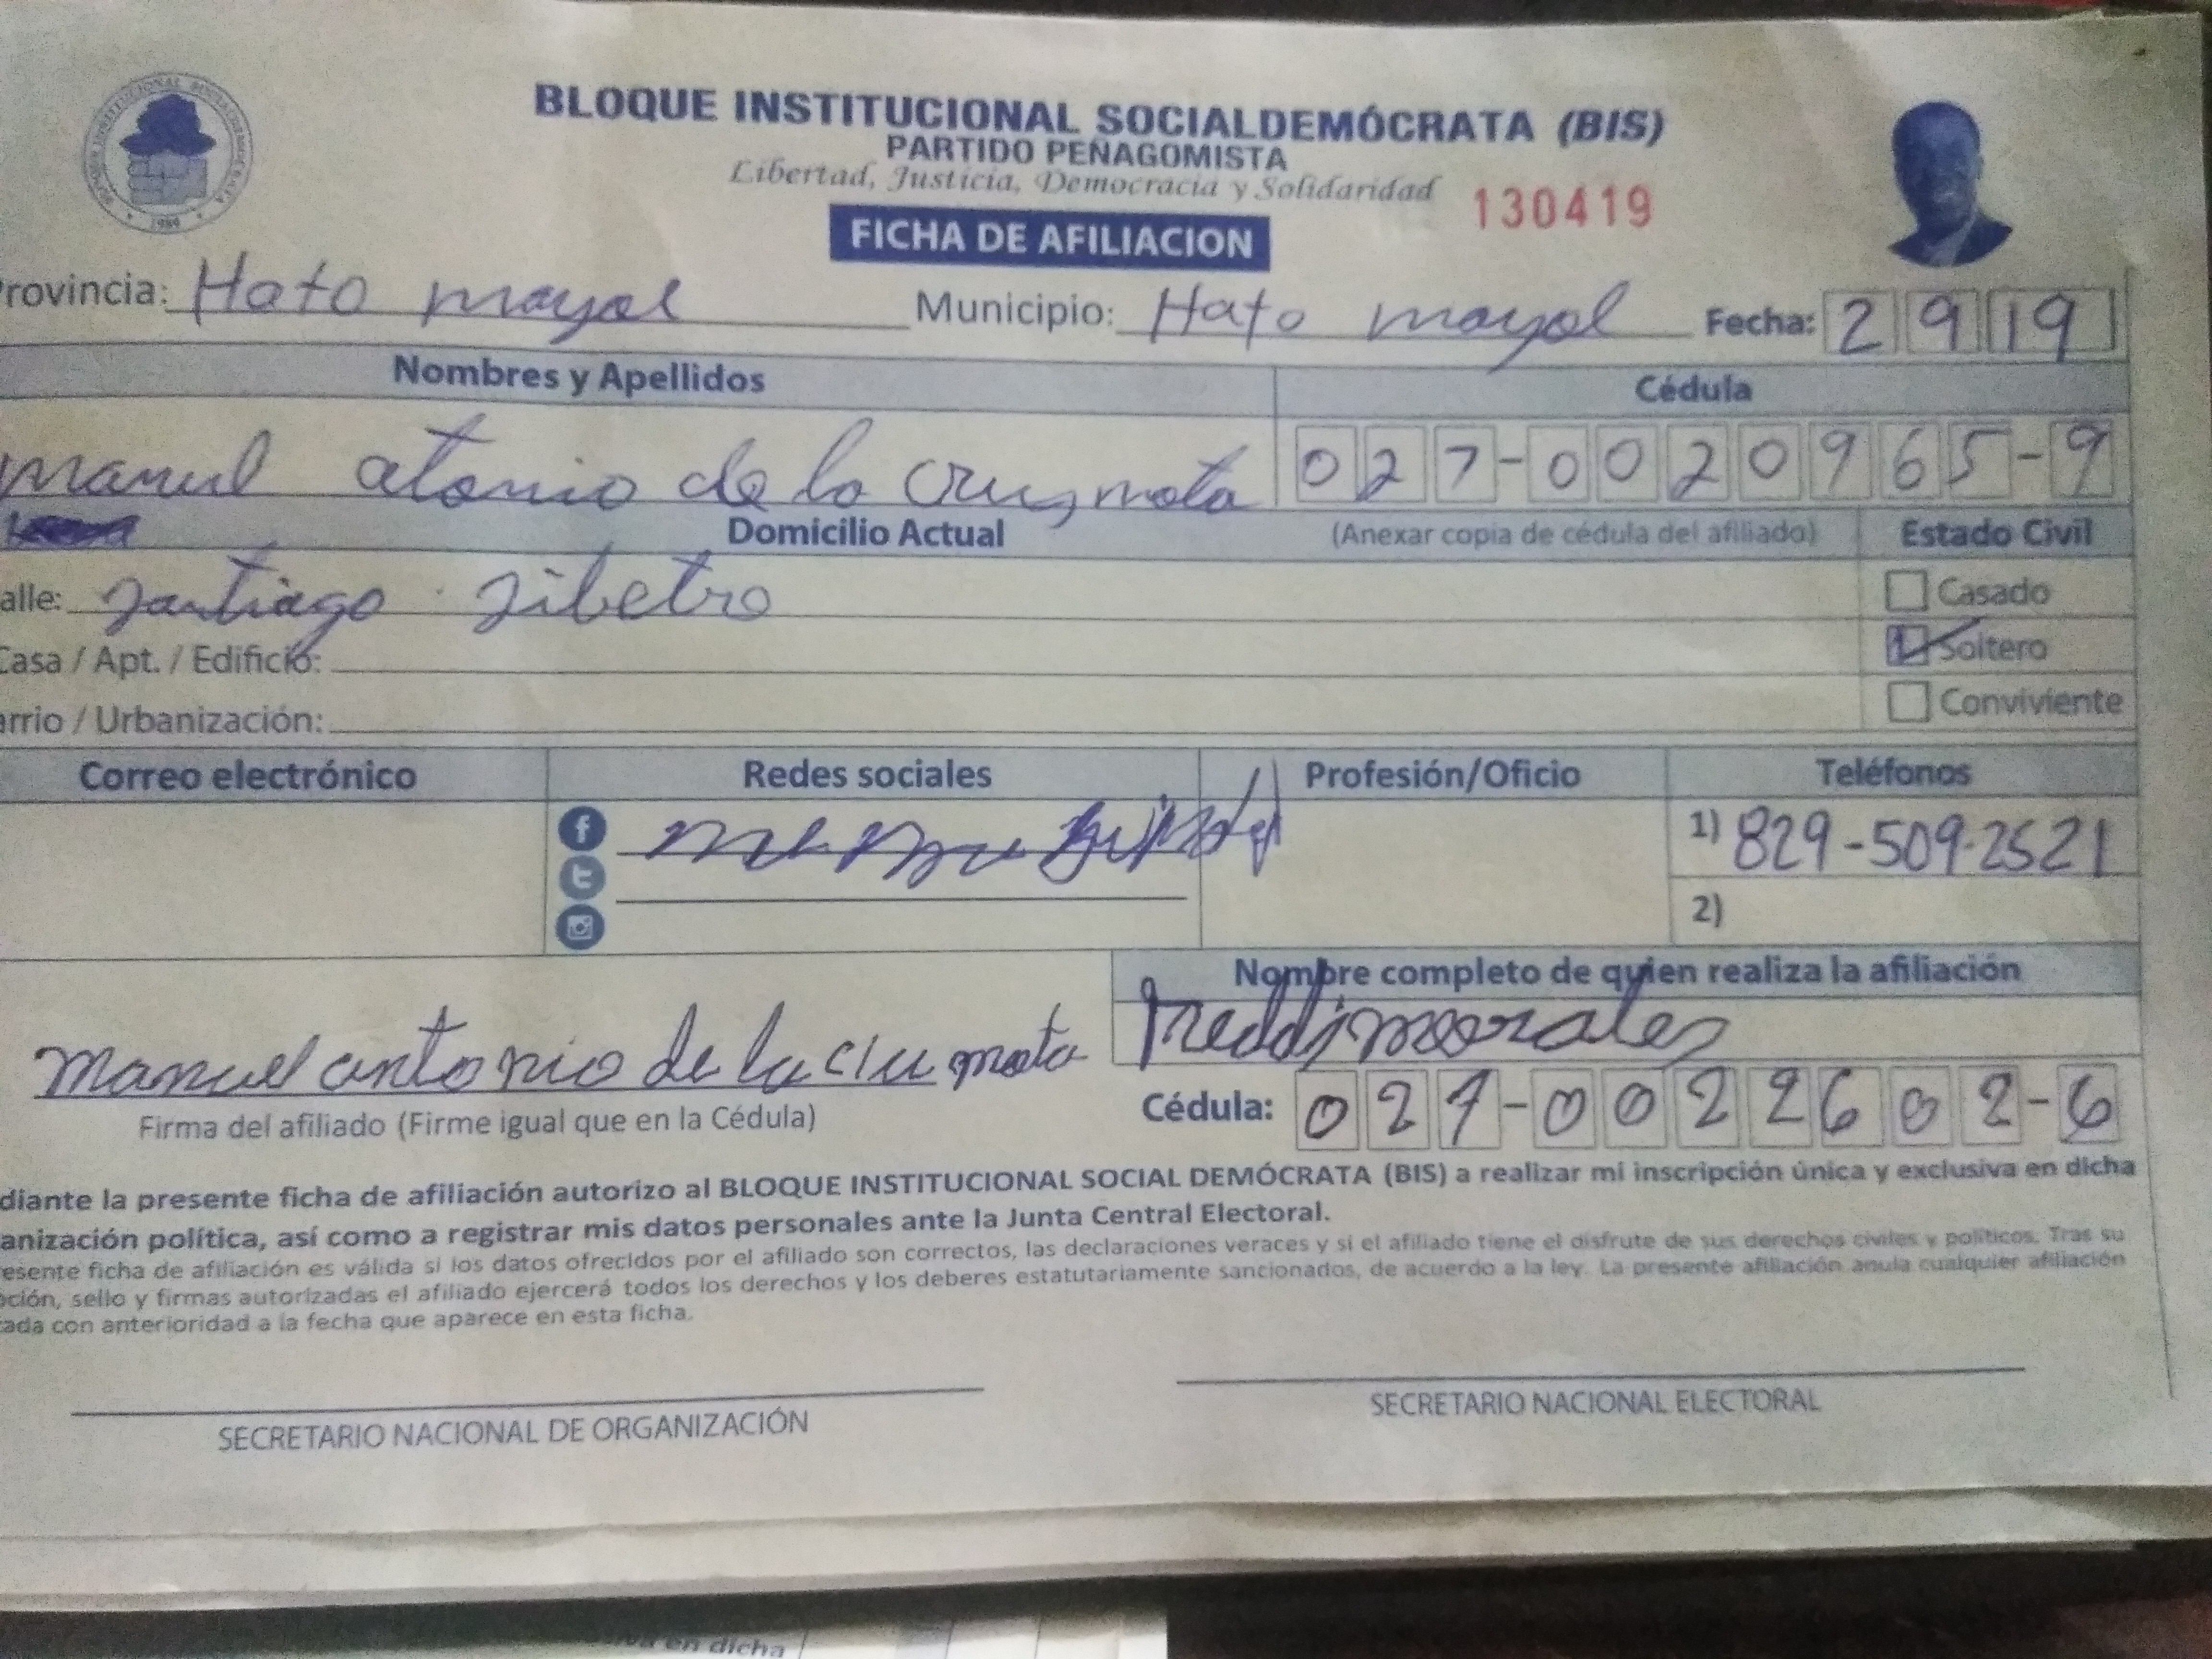 BLOQUE INSTITUCIONAL SOCIALDEMÓCRATA (BIS)
PARTIDO PEÑAGOMISTA
Libertad, Justicia, Democracia y Solidaridad
130419
FICHA DE AFILIACION
rovincia: Hato mayol Municipio: Hato mayol Fecha: 2 9 19
Nombres y Apellidos Cédula
manuel atonio de la Cruz mota 027-0020965-9
Domicilio Actual (Anexar copia de cédula del afiliado) Estado Civil
alle: Santiago Silbetro
Casado
Casa / Apt. / Edificio: Soltero
arrio / Urbanización: Conviviente
Correo electrónico Redes sociales Profesión/Oficio Teléfonos
1) 829-509-2521
2)
Nombre completo de quien realiza la afiliación
freddi morales
manuel antonio de la clu mota
Firma del afiliado (Firme igual que en la Cédula) Cédula: 027-0022602-6
diante la presente ficha de afiliación autorizo al BLOQUE INSTITUCIONAL SOCIAL DEMÓCRATA (BIS) a realizar mi inscripción única y exclusiva en dicha
anización política, así como a registrar mis datos personales ante la Junta Central Electoral.
esente ficha de afiliación es válida si los datos ofrecidos por el afiliado son correctos, las declaraciones veraces y si el afiliado tiene el disfrute de sus derechos civiles y políticos. Tras su
ción, sello y firmas autorizadas el afiliado ejercerá todos los derechos y los deberes estatutariamente sancionados, de acuerdo a la ley. La presente afiliación anula cualquier afiliación
ada con anterioridad a la fecha que aparece en esta ficha.
SECRETARIO NACIONAL DE ORGANIZACIÓN SECRETARIO NACIONAL ELECTORAL
en dicha